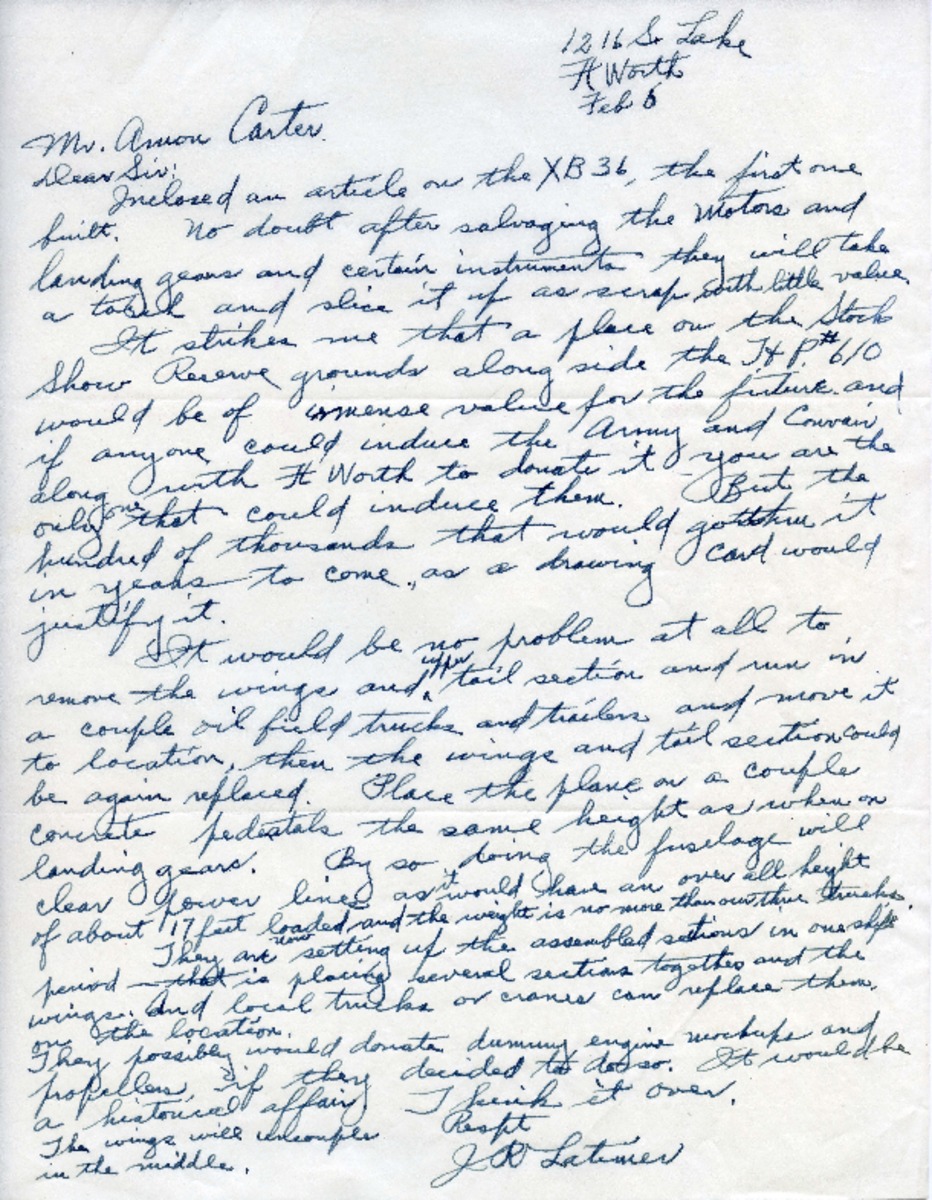 1216 So Lake
Ft Worth
Feb 6
Mr. Amon Carter.
Dear Sir:
Inclosed an article on the XB36, the first one
built. No doubt after salvaging the Motors and
landing gears and certain instruments they will take
a torch and slice it up as scrap with little value.
It strikes me that a place on the Stock
Show Reserve grounds along side the T & P #610
would be of immense value for the future and
if anyone could induce the Army and Convair
along with Ft Worth to donate it you are the
only one that could induce them. But the
hundred of thousands that would go thru it
in years to come, as a drawing card would
justify it.
It would be no problem at all to
remove the wings and upper tail section and run in
a couple oil field trucks and trailers and move it
to location, then the wings and tail section could
be again replaced. Place the plane on a couple
concrete pedestals the same height as when on
landing gears. By so doing the fuselage will
clear power lines as it would have an over all height
of about 17 feet loaded and the weight is no more than our thru trucks.
They are now setting up the assembled sections in one shift
period — that is placing several sections together and the
wings. And local trucks or cranes can replace them.
on the location.
They possibly would donate dummy engine mockups and
propellers, if they decided to do so. It would be
a historical affair. Think it over.
The wings will uncouple Respt
in the middle. J R Latimer